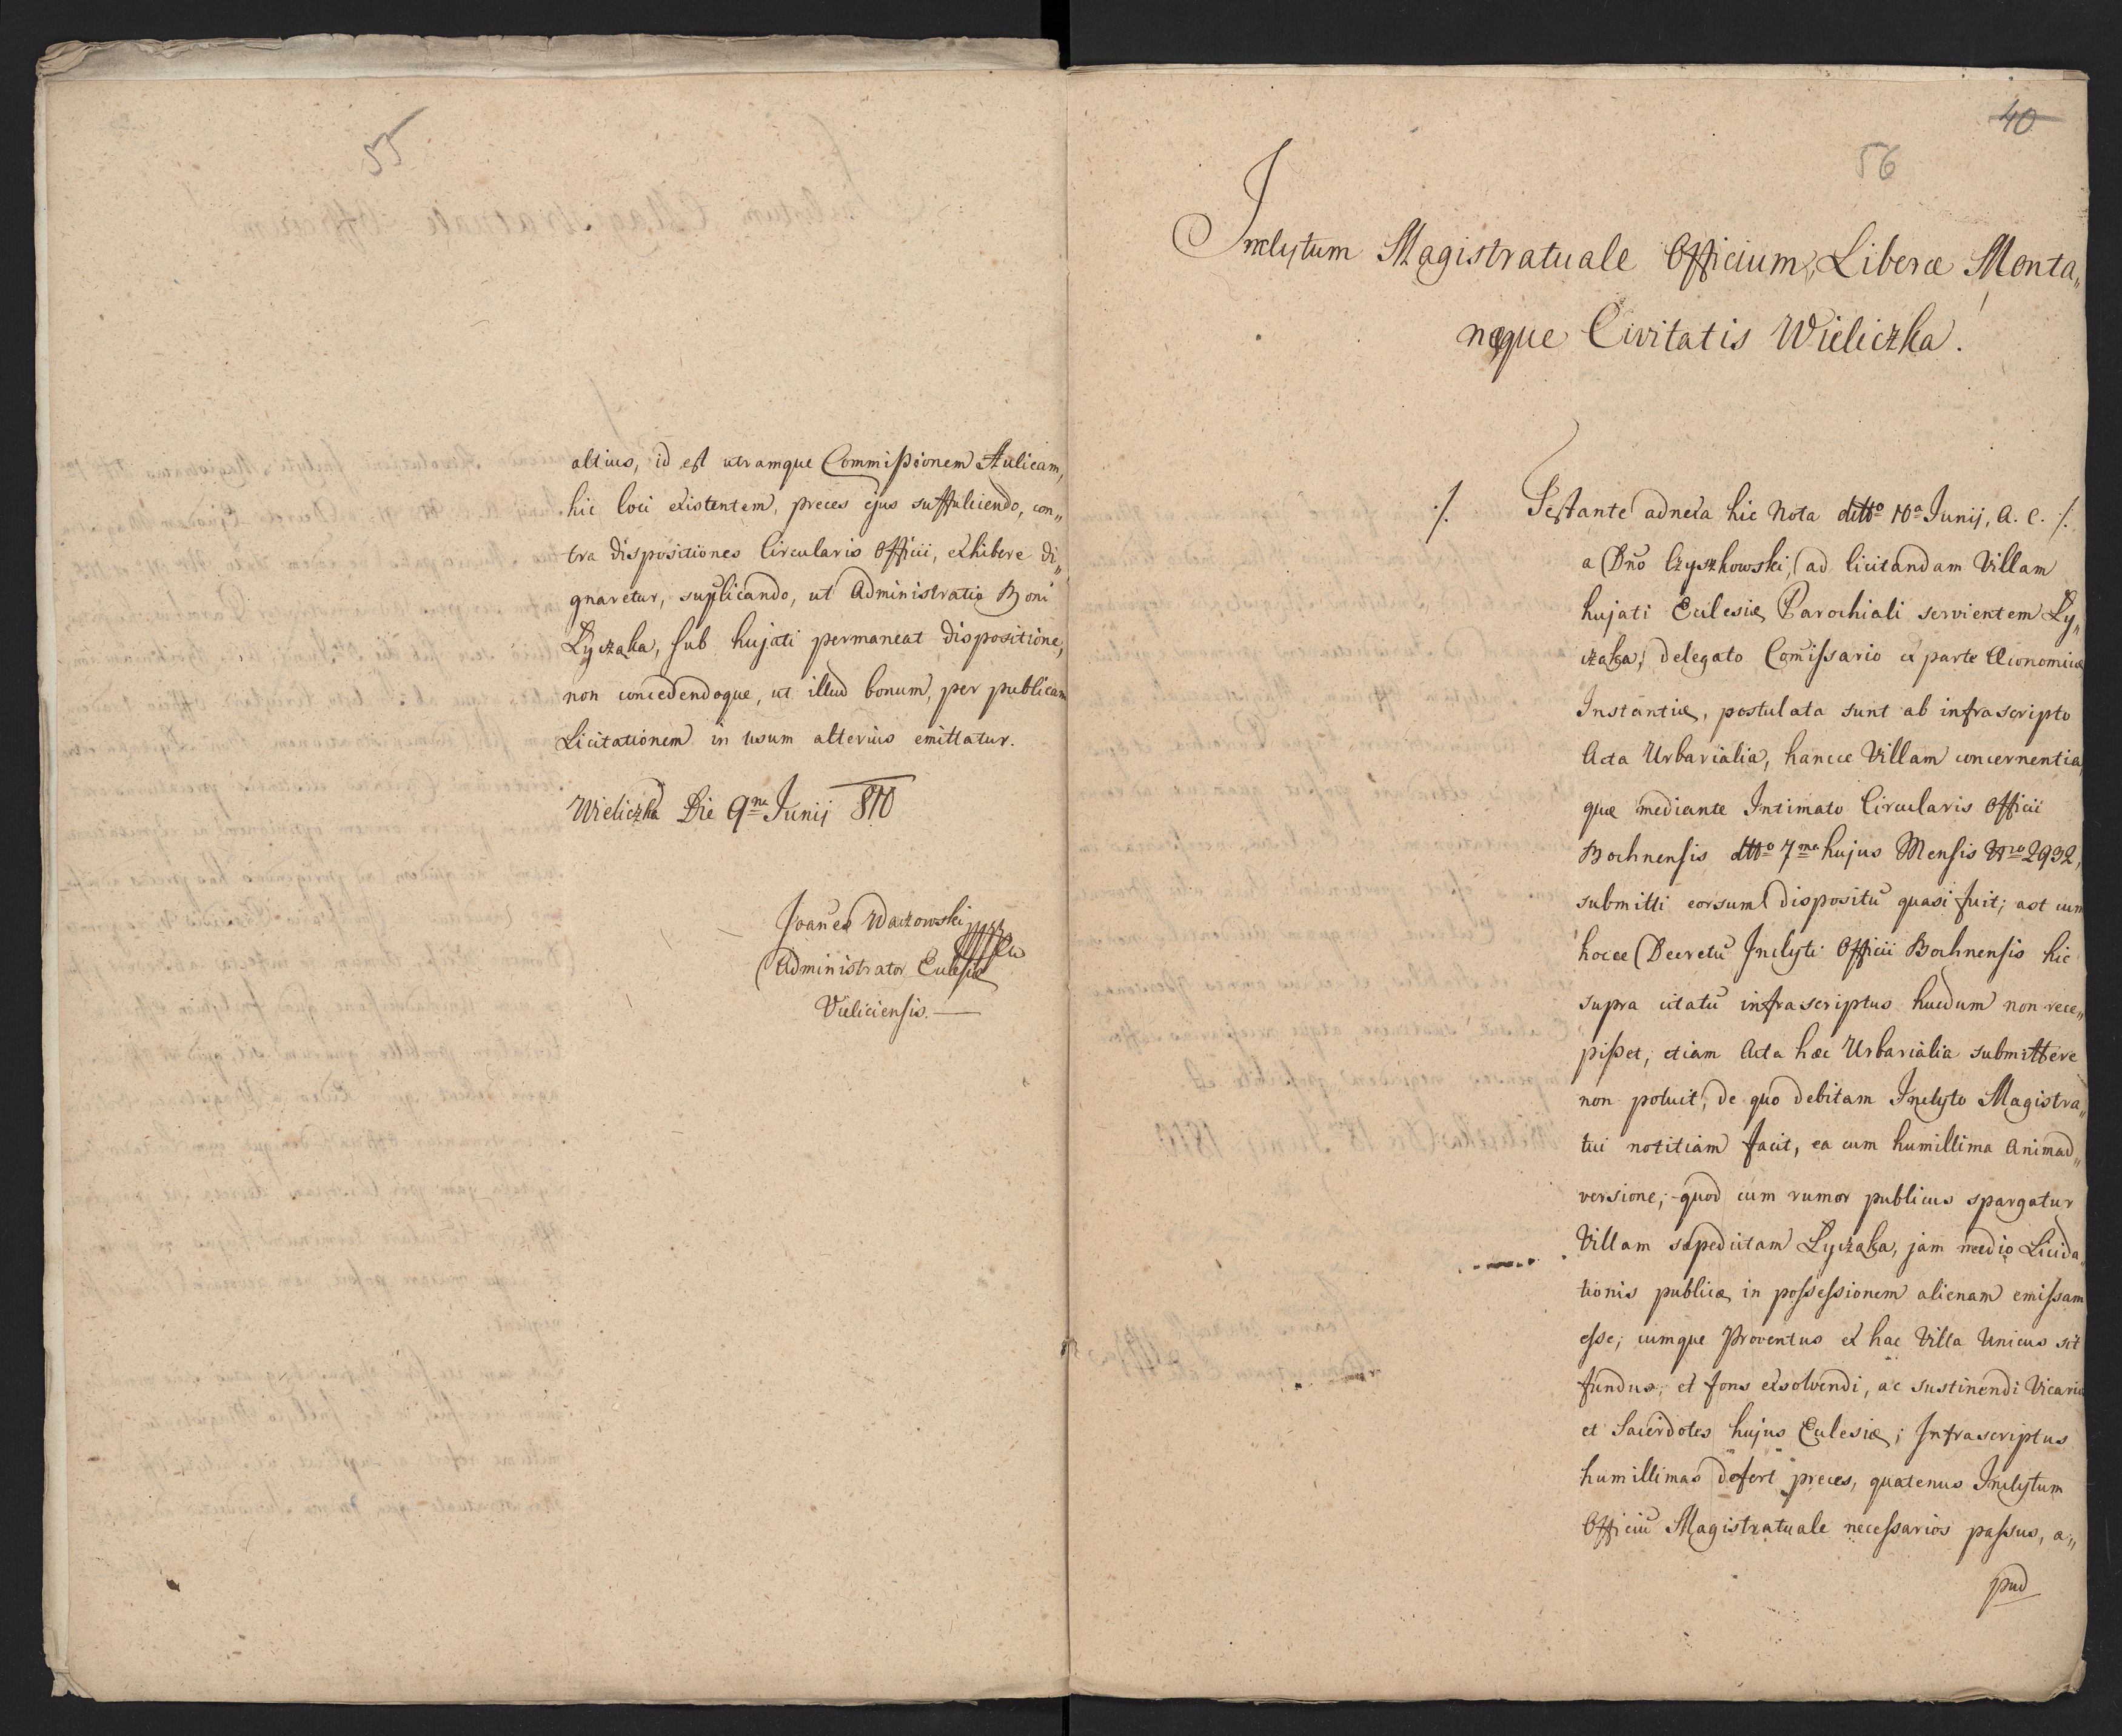 55
altius, id est utramque Commissionem Aulicam,
hic loci existentem, preces ejus suffulciendo, con„
tra dispositiones Circularis Officii, exhibere di„
gnaretur, suplicando, ut Administratio Boni
Lyczaka, sub hujati permaneat dispositione,
non concedendoque, ut illud bonum, per publicam
Licitationem in usum alterius emittatur.
Wieliczka Die 9na Junij 810
Joañes Waczowski
Administrator Ecclesiæ
Vieliciensis. —
40
56
Inclytum Magistratuale Officium, Liberæ Monta„
næque Civitatis Wieliczka!
./. Testante adnexa hic Nota ddtto 10a Junij, a. c. ./.
a Dño Czyszkowski, ad licitandam Villam
hujati Ecclesiæ Parochiali servientem Ly„
czaka, delegato Comissario ex parte Œconomicæ
Instantiæ, postulata sunt ab infrascripto
Acta Urbarialia, hancce Villam concernentia,
quæ mediante Intimato Circularis Officii
Bochnensis ddtto 7ma hujus Mensis Nro 2932,
submitti eorsum dispositũ quasi fuit; ast cum
hocce Decretũ Inclyti Officii Bochnensis hic
supra citatũ infrascriptus hucdum non rece„
pisset, etiam Acta hæc Urbarialia submittere
non potuit, de quo debitam Inclyto Magistra„
tui notitiam facit, ea cum humillima Animad„
versione; quod cum rumor publicus spargatur
Villam sæpedictam Lyczaka, jam medio Licida„
tionis publicæ in possessionem alienam emissam
esse; cumque Proventus ex hac Villa Unicus sit
fundus, et fons exsolvendi, ac sustinendi Vicarios
et Sacerdotes hujus Ecclesiæ; Infrascriptus
humillimas defert preces, quatenus Inclytum
Officiũ Magistratuale necessarios passus, a„
pud